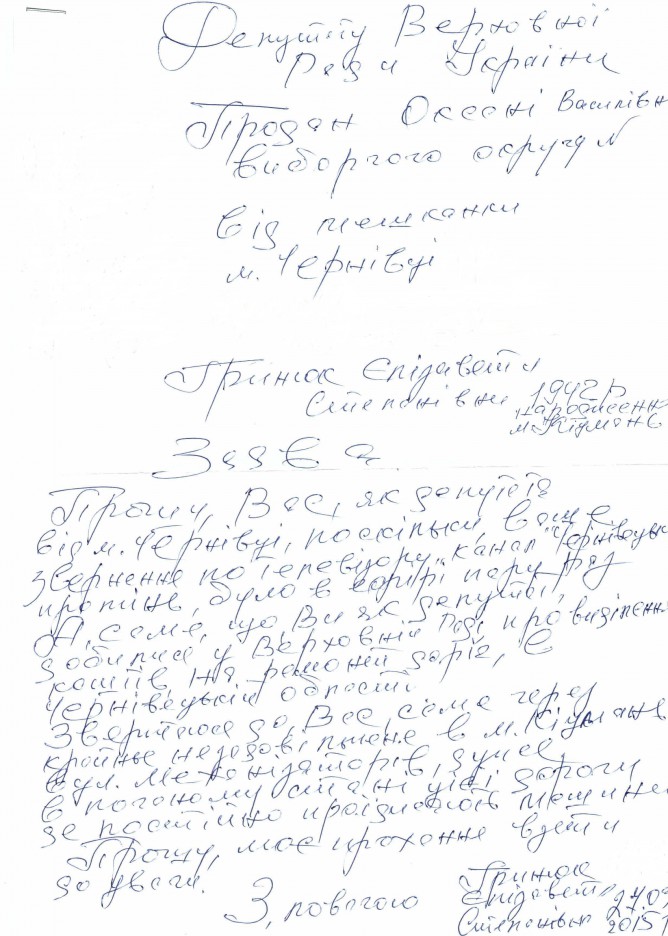 Депутату Верховної
Ради України
Продан Оксані Василівн
виборчого округу N
від мешканки
м. Чернівці
Гринюк Єлізавети
Степанівни 1942 р
народження
м. Кіцмань
Заява.
Прошу, Вас, як депутата
від м. Чернівці, поскільки ваше
звернення по телевізору, канал "Чернівецьк
промінь, було в ефірі пару раз
А, саме, що Ви як депутат,
добилися у Верховній Раді, про виділення
коштів, на ремонт доріг, в
Чернівецькій області.
Звертаюся до, Вас саме через
крайнє незадовільне в м. Кіцмань
вул. Механізаторів, дуже
в поганому стані цієї дороги
де постійно проїзджають машини
Прошу, моє прохання взяти
до уваги.
З, повагою
Гринюк
Єлізавета
Степанівна